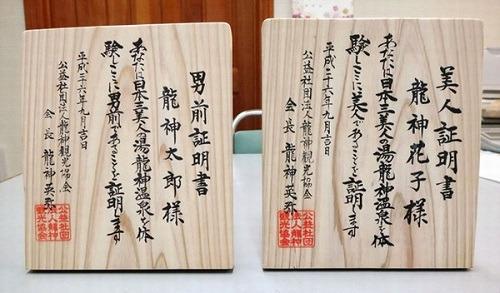 男前証明書
龍神太郎様
あなたは日本三美人の湯龍神温泉を体
験しここに男前であることを証明します
平成二十六年九月吉日
公益社団法人龍神観光協会
会長 龍神英弥
公益社団
法人龍神
観光協会
美人証明書
龍神花子様
あなたは日本三美人の湯龍神温泉を体
験しここに美人であることを証明します
平成二十六年九月吉日
公益社団法人龍神観光協会
会長 龍神英弥
公益社団
法人龍神
観光協会